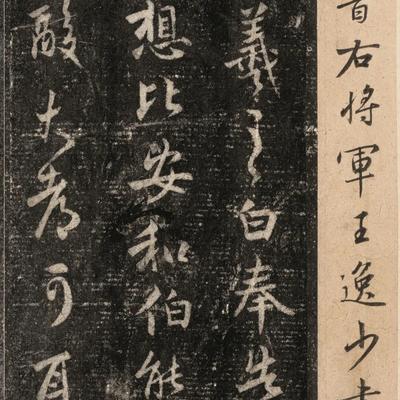 右將軍王逸少書
羲之白奉告
想比安和伯
酸大都可耳